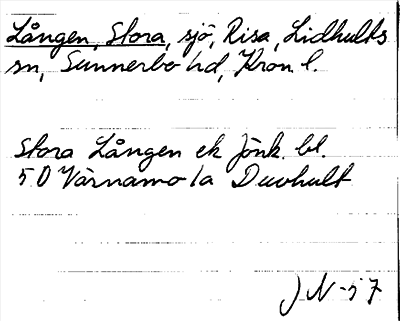 Lången, Stora, sjö, Risa, Lidhults
sn, Sunnerbo hd, Kron. l.
Stora Lången ek Jönk. bl.
5 O Värnamo 1a Duvhult
J N -57